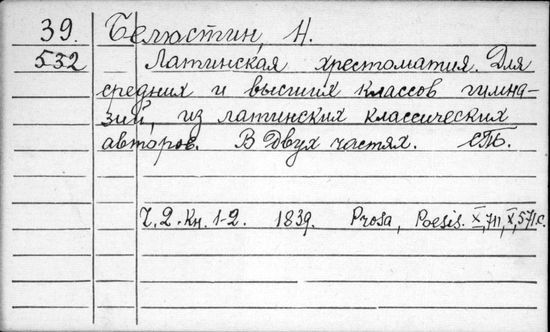 39. Белюстин, Н.
532 Латинская хрестоматия. Для
средних и высших классов гимна-
зий, из латинских классических
авторов. В двух частях. СПБ.
Ч. 2. Кн. 1-2. 1839. Prosa, Poesis. X, 711, X, 571 с.